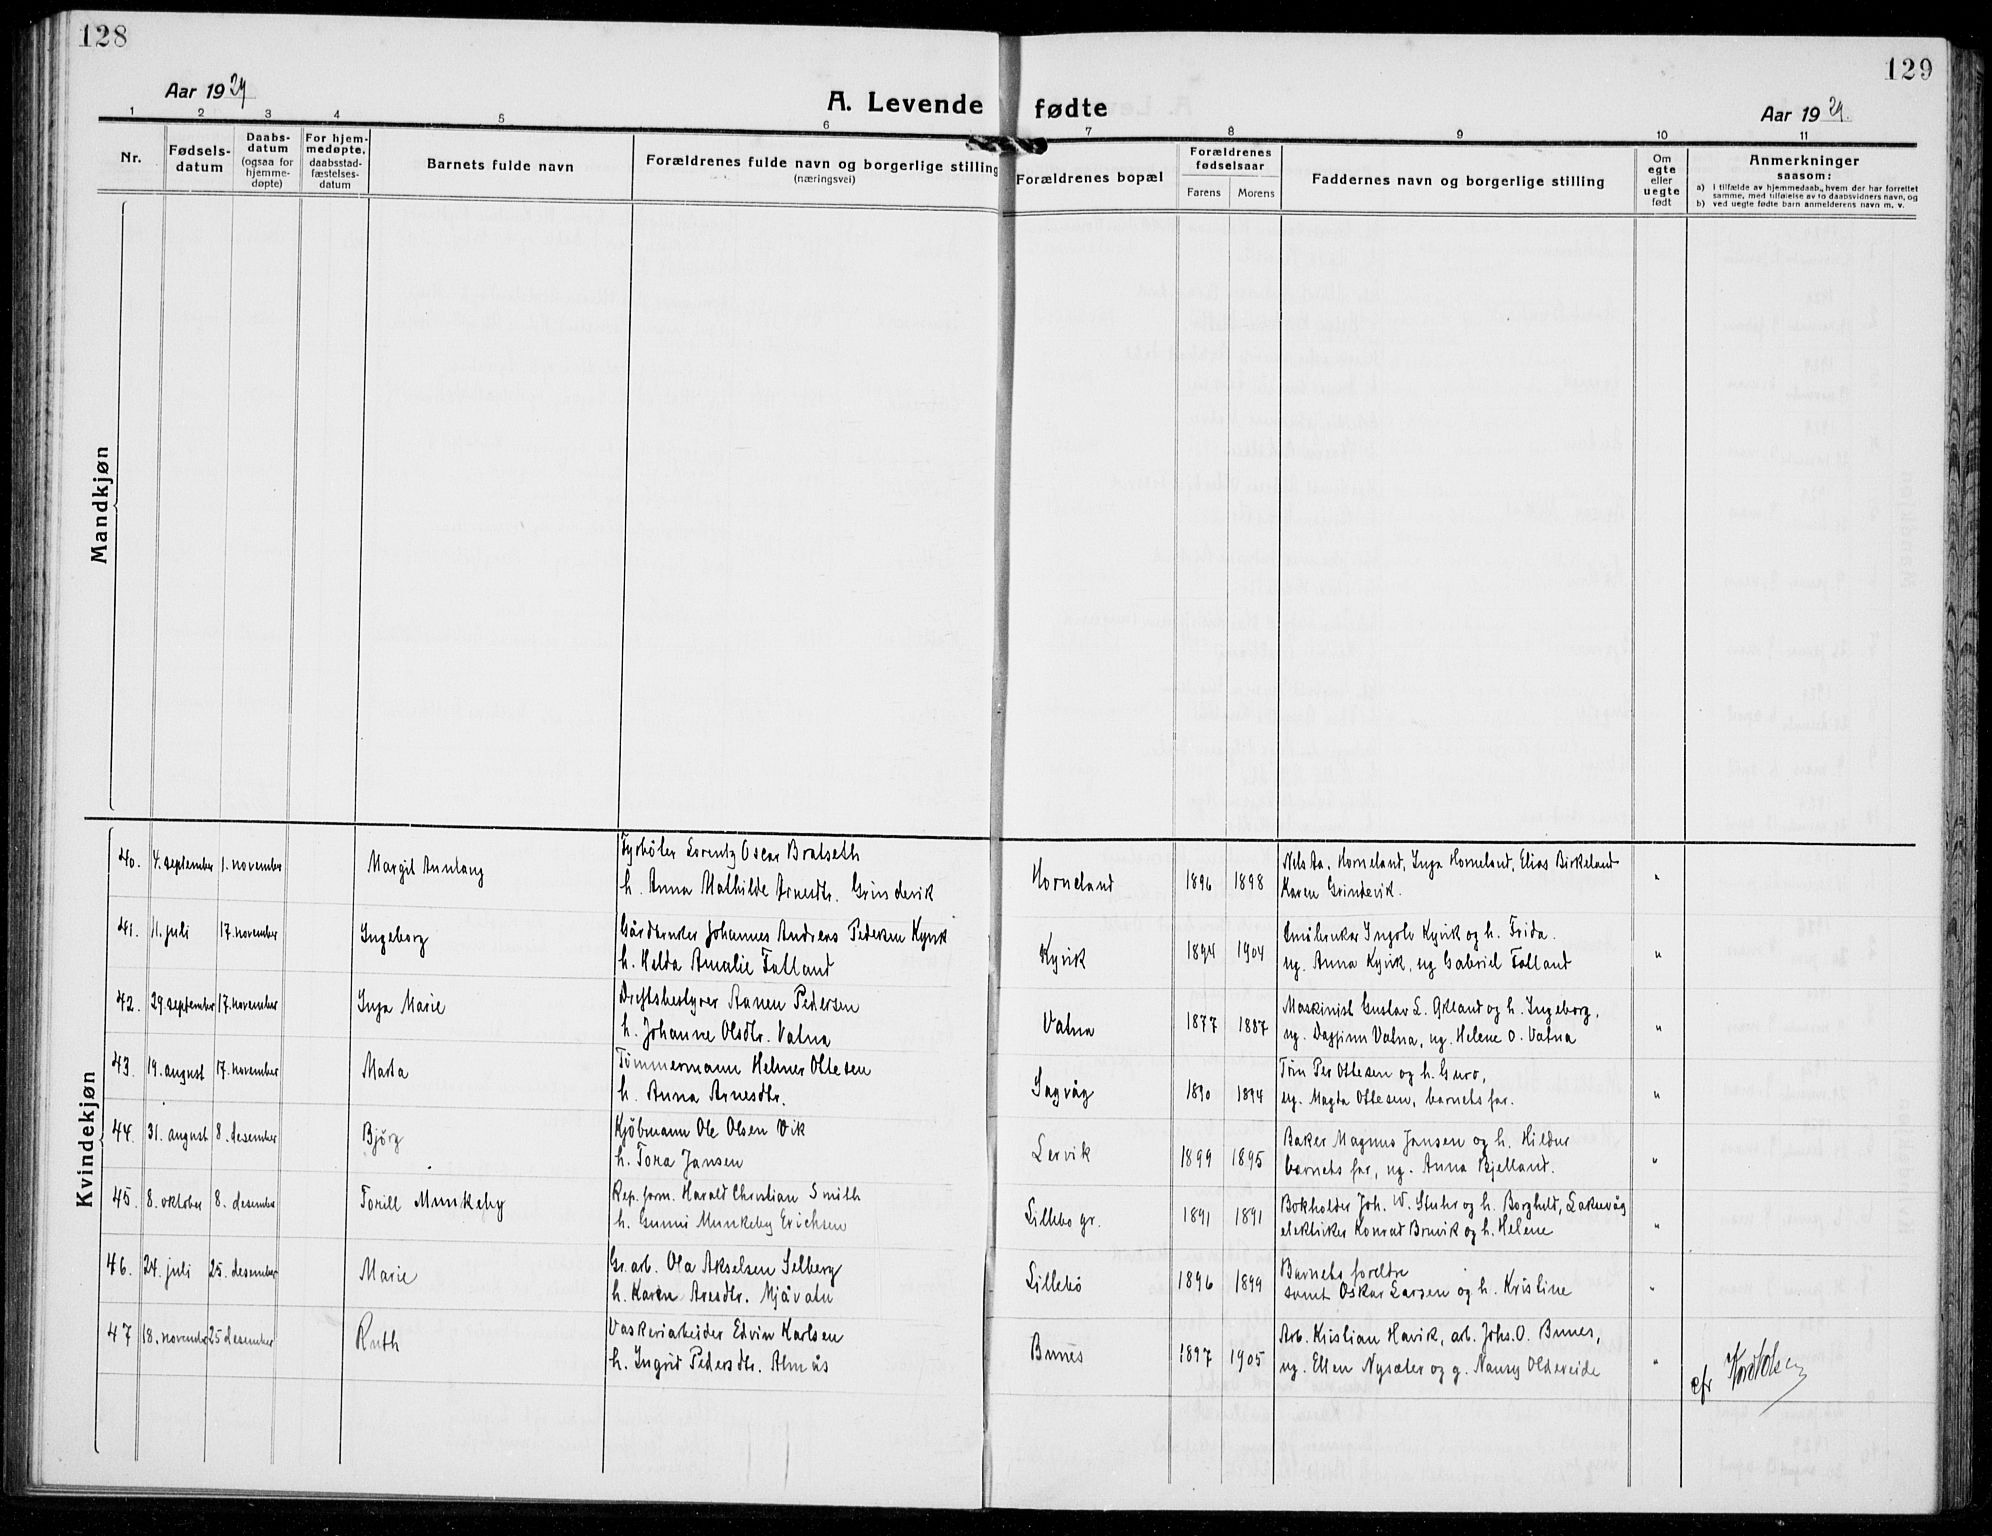 128
129
Aar 1929
A. Levende fødte
Aar 1929.
1 2 3 4 5 6 7 8 9 10 11
Nr.
Fødsels-
datum
Daabs-
datum
(ogsaa for
hjemme-
døpte)
For hjem-
medøpte,
daabsstad-
fæstelses-
datum
Barnets fulde navn
Forældrenes fulde navn og borgerlige stilling
(næringsvei)
Forældrenes bopæl
Forældrenes
fødselsaar
Farens Morens
Faddernes navn og borgerlige stilling
Om
egte
eller
uegte
født
Anmerkninger
saasom:
a) I tilfælde av hjemmedaab, hvem der har forrettet
samme, med tilføielse av to daabsvidners navn, og
b) ved uegte fødte barn anmelderens navn m. v.
Mandkjøn
Kvindekjøn
40. 4. september 1. november Margit Annlaug Fyrbøter Lorentz Oscar Bratseth Horneland 1896 1898 Nils Aa. Horneland, Inga Horneland, Elias Birkeland "
h. Anna Mathilde Arnesdtr. Grindevik Karen Grindevik.
41. 11. juli 17. november Ingeborg Gårdbruker Johannes Andreas Pedersen Kyvik Kyvik 1894 1904 Småbruker Ingolv Kyvik og h. Frida. "
h. Helda Amalie Folland ug. Anna Kyvik, ug Gabriel Folland
42. 29. september 17. november Inga Marie Driftsbestyrer Aanen Pedersen Vatna 1877 1887 Maskinist Gustav L. Økland og h. Ingeborg, "
h. Johanne Olsdtr. Vatna ug. Dagfinn Vatna, ug. Helene O. Vatna
43. 19. august 17. november Marta Tømmermann Helmer Ottesen Sagvåg 1890 1894 Tøm Per Ottesen og h. Guro, "
h. Anna Arnesdtr. ug. Magda Ottesen, barnets far.
44. 31. august 8. desember Bjørg Kjøbmann Ole Olsen Vik Lervik 1899 1895 Baker Magnus Jansen og h. Hildur "
h. Tora Jansen barnets far, ug. Anna Bjelland.
45. 8. oktober 8. desember Torill Munkeby Rep. form. Harald Christian Smith Lillebo gr. 1891 1891 Bokholder Joh. W. Stuhr og h. Borghild, Laksevåg "
h. Gunni Munkeby Erichsen elektriker Konrad Bruvik og h. Helene
46. 24. juli 25. desember Marie Gr. arb. Ola Akselsen Selberg Lillebø 1896 1899 Barnets foreldre "
h. Karen Aresdtr. Mjåvatn samt Oskar Larsen og h. Kristine
47 18. november 25 desember Ruth Vaskeriarbeider Edvin Karlsen Bunes 1897 1905 Arb. Kristian Havik, arb. Johs. O. Bunes, "
h. Ingrid Pedersdtr. Almås ug. Ellen Nysæter og g. Nansy Oldereide
efr